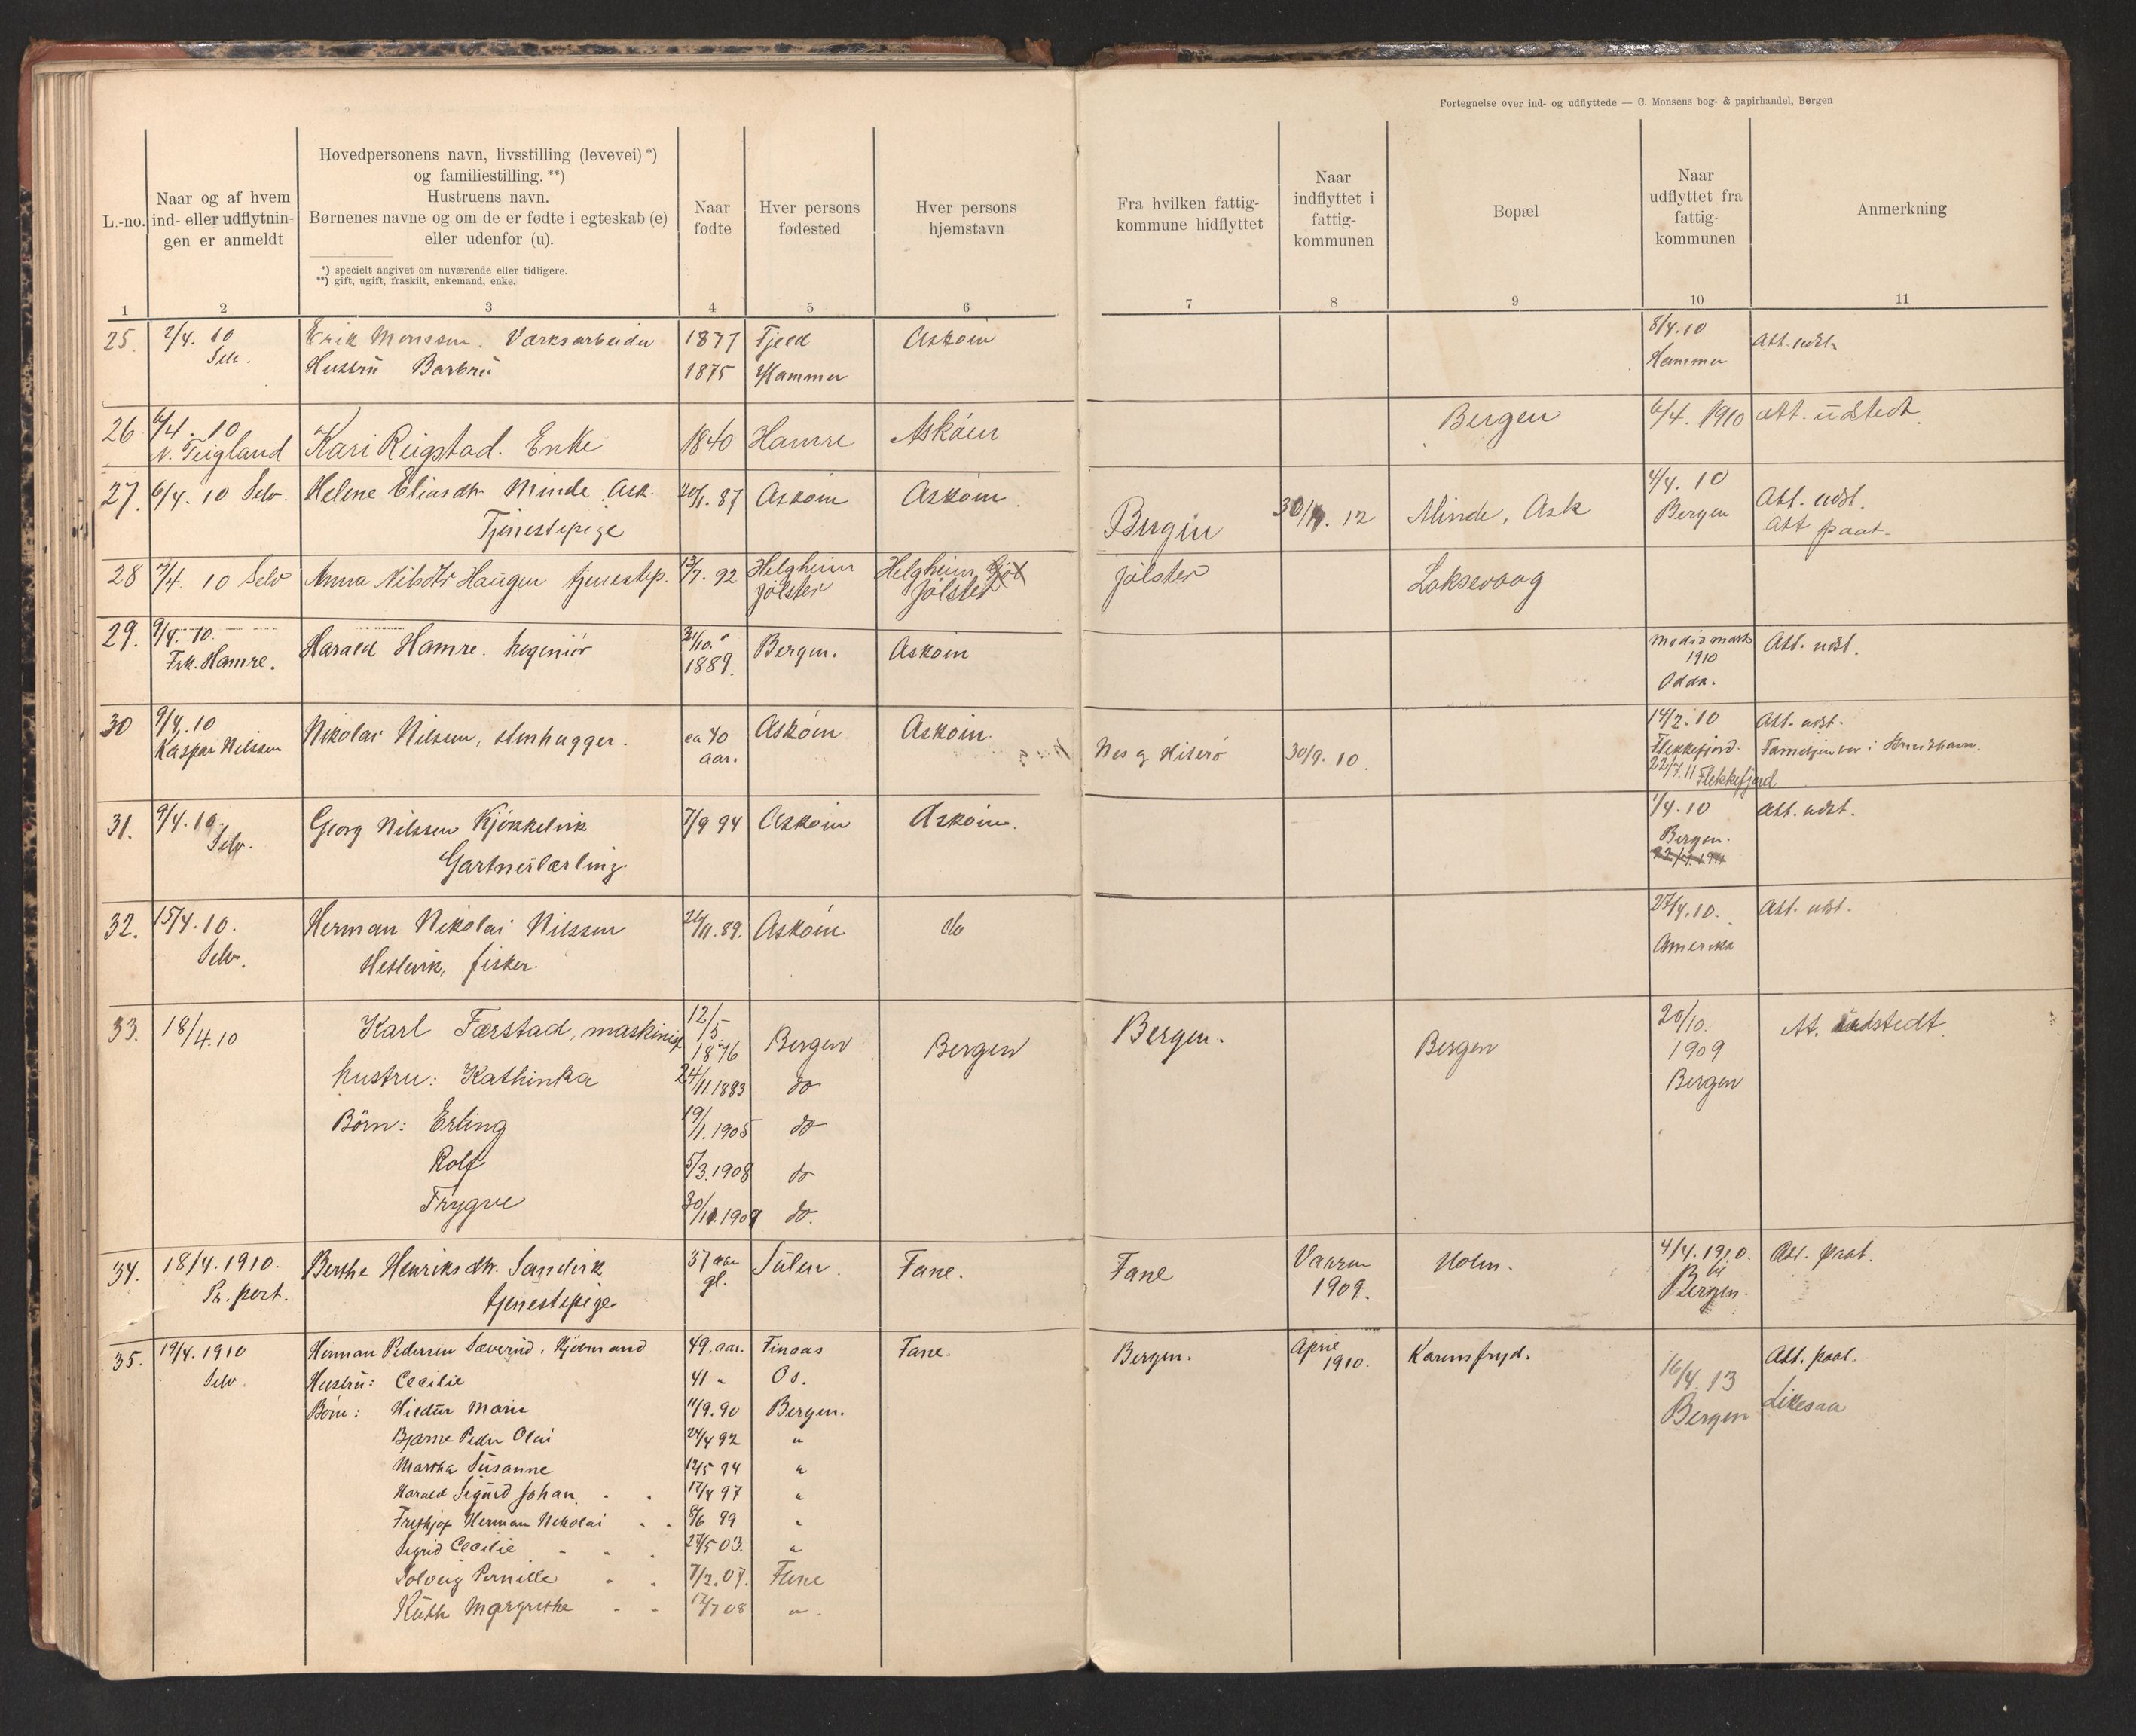 Fortegnelse over ind- og udflyttede — C. Monsens bog- & papirhandel, Bergen
L.-no.
Naar og af hvem
ind- eller udflytnin-
gen er anmeldt
Hovedpersonens navn, livsstilling (levevei) *)
og familiestilling. **)
Hustruens navn.
Børnenes navne og om de er fødte i egteskab (e)
eller udenfor (u).
*) specielt angivet om nuværende eller tidligere.
**) gift, ugift, fraskilt, enkemand, enke.
Naar
fødte
Hver persons
fødested
Hver persons
hjemstavn
Fra hvilken fattig-
kommune hidflyttet
Naar
indflyttet i
fattig-
kommunen
Bopæl
Naar
udflyttet fra
fattig-
kommunen
Anmerkning
1 2 3 4 5 6 7 8 9 10 11
25. 2/4. 10 Erik Monssen. Værksarbeider 1877 Fjeld Askøin 8/4.10 Att. udst.
Selv. Hustrü Barbrü 1875 Hammer Hammer
26 6/4. 10 Kari Reigstad. Enke 1840 Hamre Askøin Bergen 6/4. 1910 att. üdstedt.
N. Teigland
27. 6/4. 10 Selv. Helene Eliasdtr Minde Ask. 20/1. 87 Askøin Askøin. Bergen 30/4. 12 Minde, Ask 4/4. 10 Att. udst.
Tjenestepige Bergen Att paat.
28 7/4. 10 Selv Anna Nilsdtr Haugen tjenestep. 13/7. 92 Helgheim Helgheim Jølster Loksevaag
Jølster Jølster
29. 9/4. 10. Harald Hamre. Ingeniør 31/10. Bergen. Askøin 1910 Att. udst.
Frk. Hamre. 1889. Odda.
30 9/4.10 Nikolai Nilsen, stenhugger. ca 40 Askøin Askøin. Nes g Hiterø 30/9. 10. 14/2. 10 Att. udst.
Kaspar Nilssen aar. Flekkefjord. Familjen bor i
22/7.11 Flekkefjord
31. 9/4. 10. Georg Nilssen Kjøkkelvik 7/9 94 Askøin Askøin. 1/4.10 Att. udst.
Selv. Gartnerlærling. Bergen.
32. 15/4. 10. Herman Nikolai Nilssen 24/11. 89. Askøin do 27/4.10. Att. udst.
Selv. Hetlevik, fisker. Amerika
33. 18/4.10 Karl Færstad, maskinist 12/5 1876 Bergen Bergen Bergen. Bergen 20/10. At. udstedt.
1909
Bergen
hustru: Kathinka 24/11.1883 do
Børn: Erling 19/11.1905 do
Rolf 5/3.1908 do
Trygve 30/11.1909 do.
34. 18/4.1910. Berthe Henriksdtr. Sandvik 37 aar Sülen. Fane. Fane Vaaren Holm. 4/4.1910. Att. paat.
Pr. port. tjenestepige gl. 1909. til
Bergen.
35. 19/4.1910 Herman Pedersen Sæverud. Hjelmand 49. aar. Finaas Fane. Bergen. April Karensfryd. Att. paat.
Selv. 1910.
Hustrü: Cecilie 41 " Os. 16/4. 13 Likesaa
Børn: Hildür Marie 11/9. 90 Bergen. Bergen
Bjarne Peder Olai 24/4 92 "
Martha Süsanne 12/5 94 "
Harald Sigürd Johan 17/4 97 "
Frithjof Herman Nikolai 8/6 99 "
Sigrid Cecilie 27/5 03. "
Solveig Pernille 7/2. 07. Fane
Rüth Margrethe 12/7 08 "